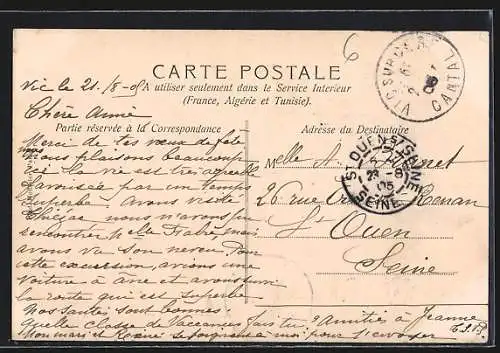 CARTE POSTALE
A utiliser seulement dans le Service Intérieur
(France, Algérie et Tunisie).
Partie réservée à la Correspondance
Adresse du Destinataire
6
VIC-SUR-CÈRE
CANTAL
Vic le 21/8-05
Chère Amie
Merci de tes vœux de fête
nous plaisons beaucoup
ici la vie est très agréable
favorisée par un temps
superbe. Avons visité
nous n'avons pu
rencontrer Melle
avons vu son neveu. Pour
cette excursion, avions une
voiture à âne et avons suivi
la route qui est superbe
Nos santés sont bonnes.
Quelle classe de Vaccances fais tu? Amitiés à Jeanne
Mon mari et se joignent à moi pour t'envoyer
Melle A.
26 rue Renan
St Ouen
Seine
ST OUEN S/SEINE
23 -8
05
SEINE